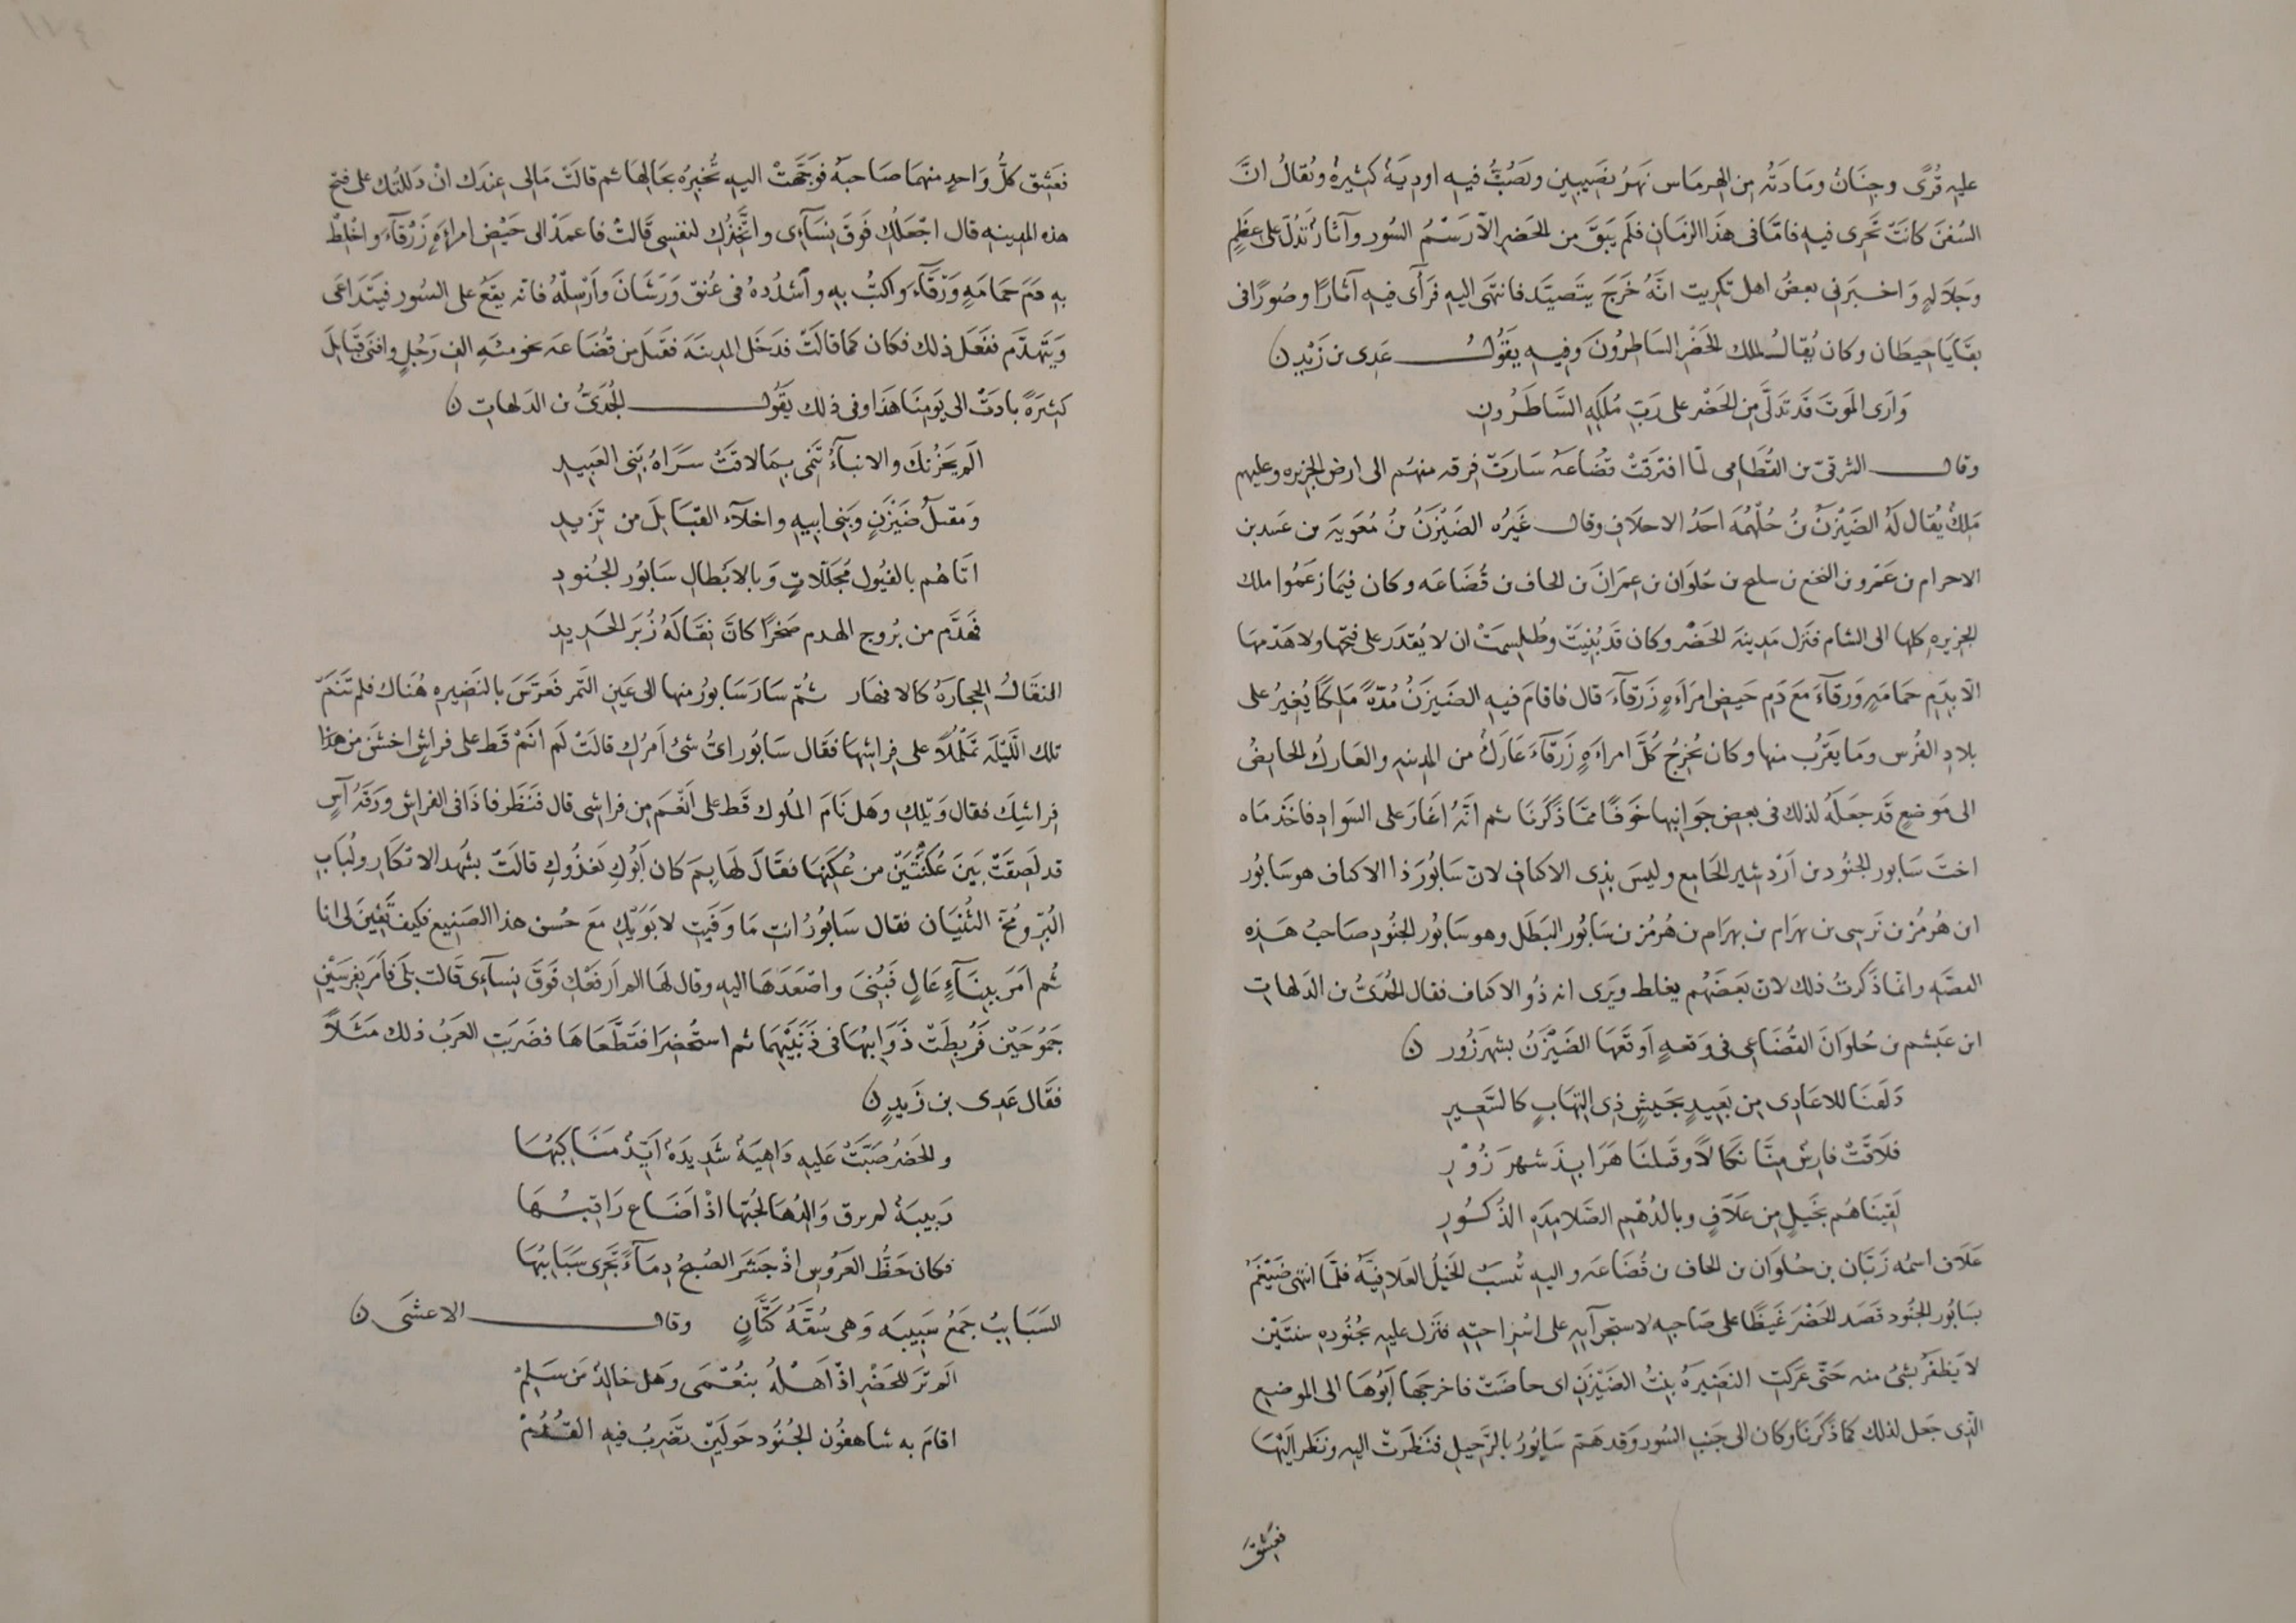 عليه قُرًى وجِنَانٌ ومَادتُه مِن الهِرمَاس نَهَرُ نصَيبِين وتصُبُّ فيه اودِيَةٌ كثيرةٌ ويُقالُ انَّ
السُفنَ كانَتْ تَجرِى فيه فامَّا فى هَذَا الزمَانِ فلَم يَبقَ من الحَضرِ الاّ رَسْمُ السُور وآثارٌ تَدُلّ على عِظَمٍ
وجَلَالهٍ وَاخبرَنى بعضُ اهل تكرِيت انَّهُ خَرَجَ يتَصيَّد فانتهَى اليه فرَأى فيه آثارًا وصُورًا فى
بقَايَا حِيطَان وكان يُقالُ لملك الحَضْر السَاطِرُونَ وَفيهِ يقَوُلُ عَدِى بن زَيْدٍ ن
وَارَى المَوتَ قَد تدَلَّى مِن الحَضْر على رَبّ مُلكِهِ السَّاطِرُونِ
وقال الشرقىّ بن القُطَامى لمّا افترَقتْ قُضَاعَهُ سَارَتْ فِرقه منهُم الى ارض الجزيره وعليهم
مَلِكٌ يُقال لَهُ الضَيْزَنُ بنُ جُلْهُمَه احَدُ الاحلَافِ وقال غَيرُه الضَيْزَنُ بنُ مُعَوِيَه بن عَبيد بن
الاحرام بن عَمْرو بن النخع بن سليح بن حُلوَان بن عِمرَانَ بن الحاف بن قُضَاعَه وكان فيمَا زعَمُوا ملك
الجزيرهِ كلها الى الشام فنزل مَدِينهَ الحَضْر وكان قَد بُنِيَتْ وطُلسِمَتْ ان لا يُقدَرَ على فتحها ولا هَدْمهَا
الاّ بِدَمِ حمَامَهٍ وَرقَآءَ مَعَ دَمِ حَيضِ امرَاَهٍ زَرقَآءَ قال فاقامَ فيهِ الضَيزَنُ مُدّهً مَلِكًا يُغيرُ على
بلادِ الفُرس ومَا يقَرُب منها وكان يُخرِجُ كُلَّ امراَهٍ زَرقَآءَ عَارَكٍ من المدينهِ والعَاركُ الحايِضُ
الى مَوضعٍ قَد جعَلَهُ لذلك فى بعضِ جَوانِبها خَوفًا ممّا ذكَرنَا ثم انَّهُ اغَارَ على السَوادِ فاخَذ مَاه
اختَ سَابور الجنُود بن اَرْدشير الجَامِع وليسَ بِذِى الاكتافِ لانّ سَابُورَ ذا الاكتاف هو سَابُور
ابن هُرمُز بن نرَسِى بن بهرَام بن بهرَام بن هُرمُز بن سَابُور البَطَل وهو سَابُور الجنُودِ صَاحبُ هَذِه
القصَّهِ وانمّا ذكَرتُ ذلك لانّ بَعضَهُم يغلط ويَرى انه ذُو الاكتاف فقال الجُدَىُّ بن الدَلهاثِ
ابن عَبشم بن حُلوَانَ القُضَاعِى فى وَقعهٍ اَوقعَهَا الضَيْزَنُ بشهرَزُور ن
دَلَفنَا للاعَادِى مِن بعَيدٍ بجَيشٍ ذِى التِهَابٍ كالسَّعِيرِ
فلَاقَتْ فارسٌ مِنَّا نكالًا وقتَلنَا هَرَابِذَ شهرَ زُوْرِ
لَقِينَاهُم بخَيلٍ مِن عَلَافٍ وبالدُهْمِ الصَلَادِمَهِ الذُكُورِ
عَلَاف اسمُه زَبَّان بن حُلوَان بن الحاف بن قُضَاعه واليهِ تُنسَبُ الخَيلُ العَلَافيَّهُ فلمَّا انتهى ضَيْغَمُ
بسَابُور الجنُود قصَد الحَضْرَ غَيظًا على صَاحِبهِ لاستجرآيِهِ على اسْرِ اختِهِ فنَزل عليهِ بجُنُودِه سنتَيْن
لا يَظفَرُ بشئٍ منه حَتّى عَركَتِ النَضِيرَهُ بِنتُ الضَيْزَنِ اى حاضَتْ فاخرجَها اَبُوهَا الى الموضِعِ
الّذِى جعَل لذلك كما ذكَرنَا وكان الى جَنبِ السُور وَقد هَمّ سَابُورُ بالرّحيلِ فنَظَرتْ اليه ونَظر اليْهَا
فعَشِقَ
فعَشِق كلُّ وَاحدٍ منهمَا صَاحبَهُ فوَجَّهَتْ اليهِ تُخبِرُه بحَالِهَا ثم قالَتْ مَا لى عِندَك انْ دَللتُك على فتح
هذه المدِينهِ قال اجْعَلُكِ فَوقَ نِسَآءِى واتَّخِذُكِ لنفسى قَالتْ فاعمَدْ الى حَيْضِ امراَهٍ زَرْقَآءَ واخْلِطْ
بهِ دَمَ حمَامَهٍ وَرْقَآءَ وَاكتبْ بهِ وأشدُدهُ فى عُنقِ وَرَشَانَ وَاَرْسِلْهُ فانّه يقَعُ على السُور فيَتَدَاعَى
وَيَتهَدَّم ففَعَل ذلك فكان كمَا قالَتْ فدَخَل المدينَهَ فقتَل من قُضَاعَه نحو مئَهِ الفِ رَجُلٍ وافنَى قبَايِلَ
كثيرَهً بادَتْ الى يَومِنَا هَذا وفى ذلك يقَوُل الجُدَىُّ بن الدَلهاثِ ن
الَم يَحزُنكَ والانبَآءُ تَنمِى بِمَا لاقَتْ سَرَاهُ بَنى العَبِيدِ
وَمقتلُ ضَيْزَنٍ وَبَنِى ابيهِ واخلآء القَبَايِلَ من تزِيدِ
اتَاهُم بالفيُول مُجَلّلَاتٍ وَبالابَطالِ سَابُور الجنُودِ
فهَدَّم من بُروج الهدم صَخرًا كانّ نِقَالَهُ زُبَر الحَدِيدِ
النِقَالُ الحِجارَهُ كالافهَار ثُمّ سَارَ سَابورُ منها الى عَينِ التَمر فعَرَّسَ بالنَضِيرهِ هُنَاك فلم تَنَمْ
تلك اللَّيْلَهَ تمَلْمُلًا على فِراشِهَا فقَال سَابُور اىُّ شئٍ اَمرُكِ قالَتْ لَم اَنَمْ قَط على فراشٍ اخشَنَ من هذا
فِراشِكَ فقال وَيْلكِ وهَل نَامَ المُلوك قَط على اَنْعَمَ مِن فراشى قال فنَظَر فاذَا فى الفراشِ ورَقهُ آسٍ
قد لَصِقَتْ بَينَ عُكنَتَيْن من عُكَنِهَا فقَالَ لهَا بِمَ كان اَبُوكِ يَغذُوكِ قالَتْ بشَهد الابكارِ ولُبَابِ
البُرّ ومُخّ الثُنيَان فقال سَابُورُ انتِ مَا وَفَيتِ لابَويْكِ مَعَ حُسن هذا الصَنِيع فكيف تَفِينَ لى انا
ثُم اَمَرَ ببِنَآءٍ عَالٍ فَبُنِىَ واصْعَدَهَا اليهِ وقال لهَا الم اَرفَعْكِ فَوقَ نِسآءِى قَالت بلَى فاَمَرَ بفرَسَيْنِ
جَمُوحَيْن فَرُبِطَتْ ذَوَايبُهَا فى ذَنَبَيْهِمَا ثم استُحْضِرَا فقَطَّعَاهَا فضَربَتِ العَرَبُ ذلك مَثَلًا
فقَال عَدِى بن زَيدٍ ن
والحَضرُ صَبَّتْ عَليهِ دَاهِيَهٌ شَدِيدَهٌ اَيِّدٌ مَنَاكِبُهَا
رَبِيبَهٌ لم برق وَالِدُهَا لحُبّها اذْ اضَاع رَاقِبُهَا
فكان حَظُّ العَرُوسِ اذْ جَشَر الصُبحُ دِمَآءً تَجرِى سَبَايِبُهَا
السَبَايبُ جمَعُ سَبِيبَه وَهى شُقَّهُ كَتَّانٍ وقال الاعشَى ن
الَم ترَ للحَضْرِ اذْ اَهلُهُ بنُعْمَى وهَل خالِدٌ مَن سَلِمْ
اقامَ به شاهفُور الجُنُود حَولَيْن تضَرِبُ فيهِ القُدُمْ